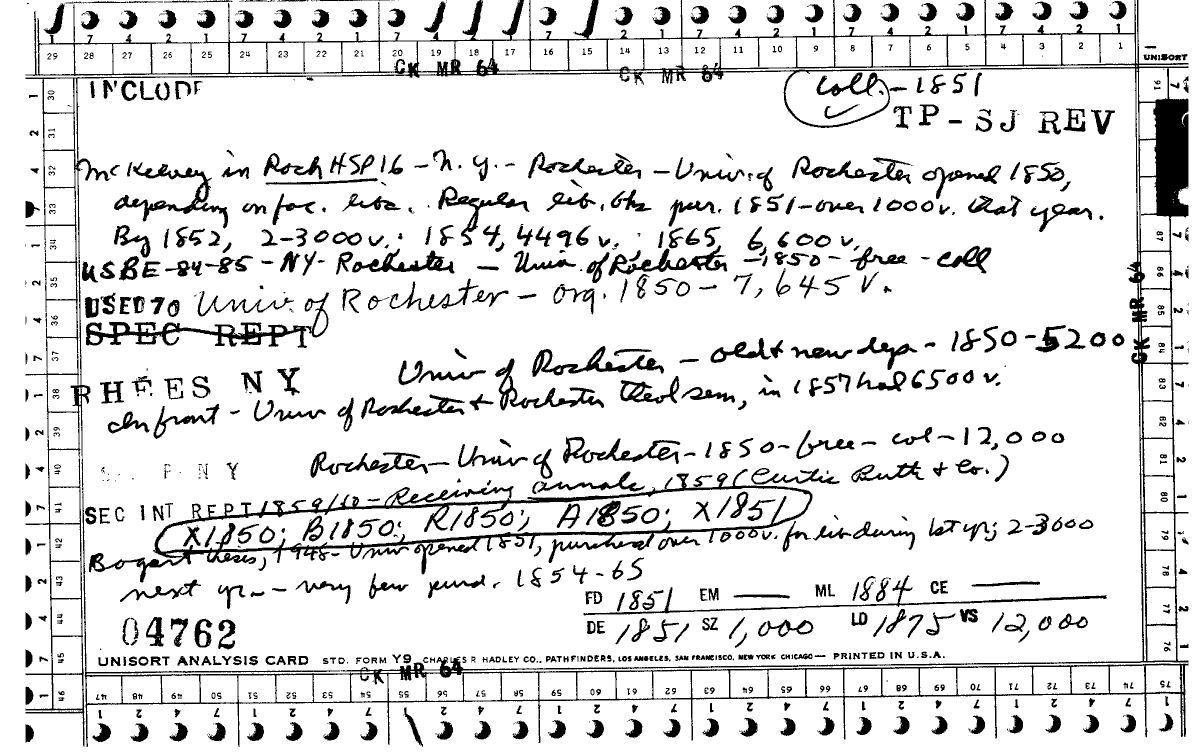 29 28 27 26 25 24 23 22 21 20 19 18 17 16 15 14 13 12 11 10 9 8 7 6 5 4 3 2 1
UNISORT
CK MR 64 CK MR 64
INCLUDE
Coll. - 1851
TP - SJ REV
McKelvey in Roch HSP 16 - N.Y. - Rochester - Univ. of Rochester opened 1850,
depending on fac. libs. Regular lib. bks pur. 1851 - over 1000 v. that year.
By 1852, 2-3000 v.; 1854, 4496 v.; 1865, 6,600 v.
USBE-84-85 - NY - Rochester - Univ of Rochester - 1850 - free - coll
USED 70 Univ. of Rochester - org. 1850 - 7,645 V.
SPEC REPT
Univ of Rochester - old & new dep - 1850 - 5200
RHEES NY
On front - Univ of Rochester & Rochester Theol sem, in 1857 had 6500 v.
Rochester - Univ of Rochester - 1850 - free - col - 12,000
SEC INT REPT 1859/60 - Receiving annals, 1859 (Curtis Buth & Co.)
X1850; B1850; R1850; A1850; X1851
Bogart thesis, 1948 - Univ opened 1851, purchased over 1000 v. for lib during 1st yr; 2-3000
next yr. - very few purd. 1854-65
FD 1851 EM — ML 1884 CE —
DE 1851 SZ 1,000 LD 1875 VS 12,000
04762
UNISORT ANALYSIS CARD STD. FORM Y9 CHARLES R HADLEY CO., PATHFINDERS, LOS ANGELES, SAN FRANCISCO, NEW YORK CHICAGO — PRINTED IN U.S.A.
CK MR 64
CK MR 64